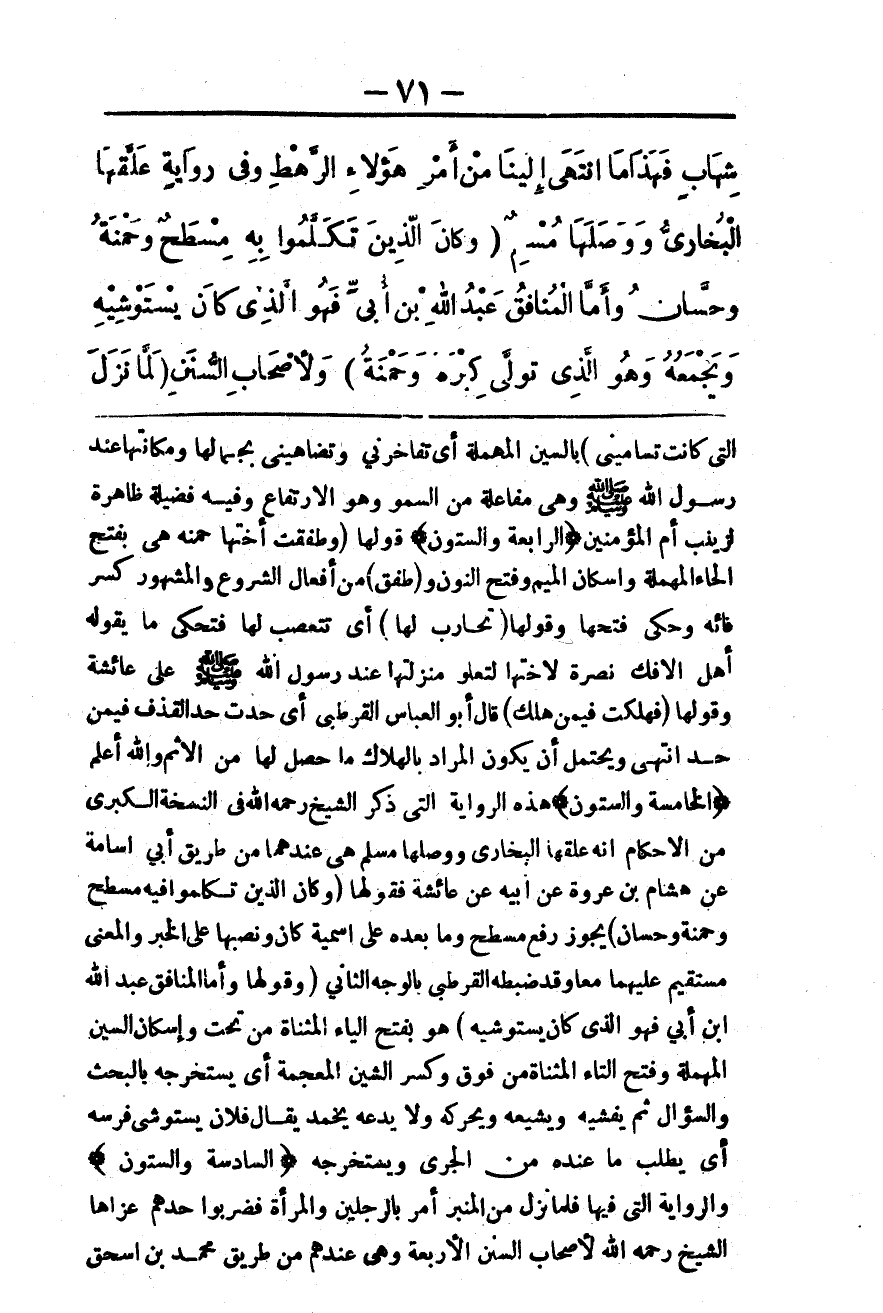 – ٧١ –
شِهَابٍ فَهَذَا مَا انْتَهَى إِلينَا مْن أَمْرِ هَؤلاءِ الرَّهْطِ وفى روايَةٍ عَلَّقهَا
الْبُخارىُّ وَوَصَلَهَا مُسْلِمٌ ( وكانَ الّذِينَ تَكَلَّمُوا بِهِ مِسْطَحٌ وحَمْنَةُ
وحسَّانُ وأَمَّا الْمُنافقُ عَبْدُ اللهِ بْن أُبىٍّ فَهُو الَّذِى كانَ يسْتَوْشِيْهِ
وَيَجْمَعُهُ وَهُو الَّذِى تولَّى كِبْرَهُ وَحَمْنَةُ ) وَلأَصْحَابِ السُّنَنِ ( لَمَّا نَزَلَ
التى كانت تسامينى ) بالسين المهملة أى تفاخرني وتضاهينى بجمالها ومكانتها عند
رسول الله ﷺ وهى مفاعلة من السمو وهو الارتفاع وفيه فضيلة ظاهرة
لزينب أم المؤمنين ﴿الرابعة والستون﴾ قولها (وطفقت أختها حمنه هى بفتح
الحاء المهملة واسكان الميم وفتح النون و(طفق) من أفعال الشروع والمشهور كسر
فائه وحكى فتحها وقولها ( تحارب لها ) أى تتعصب لها فتحكى ما يقوله
أهل الافك نصرة لاختها لتعلو منزلتها عند رسول الله ﷺ على عائشة
وقولها (فهلكت فيمن هلك) قال أبو العباس القرطبى أى حدت حد القذف فيمن
حد انتهى ويحتمل أن يكون المراد بالهلاك ما حصل لها من الاثم والله أعلم
﴿الخامسة والستون﴾ هذه الرواية التى ذكر الشيخ رحمه الله فى النسخة الكبرى
من الاحكام انه علقها البخارى ووصلها مسلم هى عندهما من طريق أبي اسامة
عن هشام بن عروة عن أبيه عن عائشة فقولها (وكان الذين تكلموا فيه مسطح
وحمنة وحسان) يجوز رفع مسطح وما بعده على اسمية كان ونصبها على الخبر والمعنى
مستقيم عليهما معا وقد ضبطه القرطبي بالوجه الثاني ( وقولها وأما المنافق عبد الله
ابن أبي فهو الذى كان يستوشيه ) هو بفتح الياء المثناة من تحت وإسكان السين
المهملة وفتح التاء المثناة من فوق وكسر الشين المعجمة أى يستخرجه بالبحث
والسؤال ثم يفشيه ويشيعه ويحركه ولا يدعه يخمد يقال فلان يستوشى فرسه
أى يطلب ما عنده من الجرى ويستخرجه ﴿السادسة والستون ﴾
والرواية التى فيها فلما نزل من المنبر أمر بالرجلين والمرأة فضربوا حدهم عزاها
الشيخ رحمه الله لأصحاب السنن الأربعة وهى عندهم من طريق محمد بن اسحق